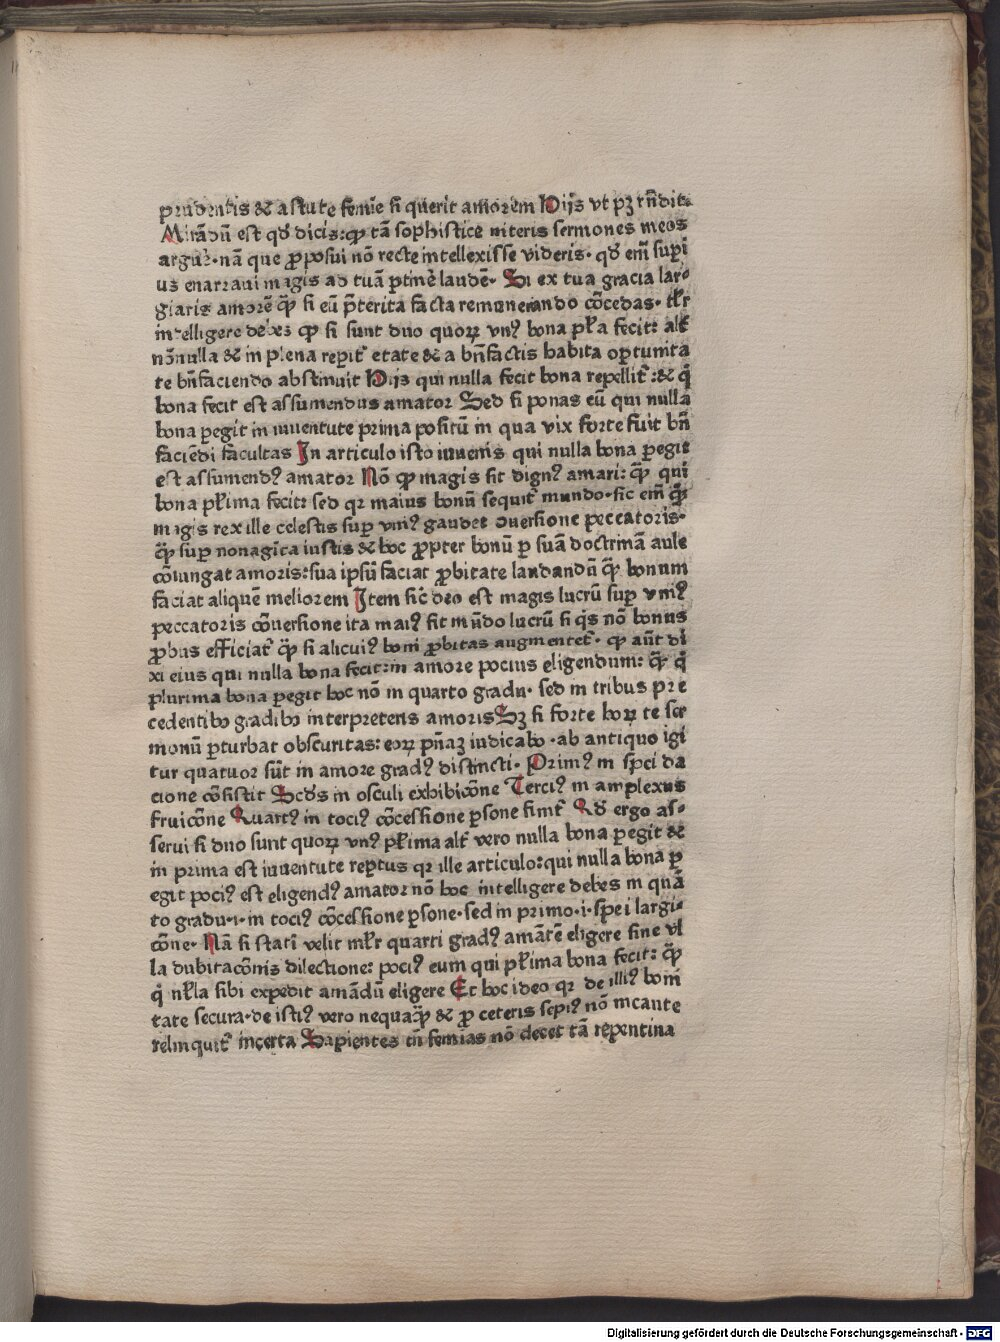 prudentis & astute femīe si querit amorem Hijs vt pꝫ rñdit·
Mirādū est qđ dicis:ꝙ tā sophistice niteris sermones meos
arguē·nā que ꝓposui nō recte intellexisse videris· qđ em̄ supi
us enarraui magis ad tuā ꝑtinēt laudē· Si ex tua gracia lar-
giaris amorē ꝙ̃ si eū p̄terita facta remunerando cōcedas· tɫr
intelligere debes ꝙ si sunt duo quoꝝ vnꝰ bona pɫa fecit: alt̄
nōnulla & in plena reperit̄ etate & a bn̄factis habita oꝑtunita
te bn̄faciendo abstinuit Hijs qui nulla fecit bona repellit̄:& q̇
bona fecit est assumendus amator Sed si ponas eū qui nulla
bona ꝑegit in iuuentute prima positū in qua vix forte fuit bn̄
faciēdi facultas In articulo isto iuuenis qui nulla bona ꝑegit
est assumendꝰ amator Nō ꝙ magis sit dignꝰ amari: ꝙ̃ qui
bona pɫima fecit: sed qr maius bonū sequit̄ mundo·sic em̄ ꝙ̃
magis rex ille celestis suꝑ vniꝰ gaudet ɔuersione peccatoris·
ꝙ̃ suꝑ nonagīta iustis & hoc ꝓpter bonū ꝑ suā doctrinā aule
cōiungat amoris:sua ipsū faciat ꝓbitate laudandū ꝙ̃ bonum
faciat aliquē meliorem Item sic̄ deo est magis lucrū suꝑ vniꝰ
peccatoris cōuersione ita maiꝰ fit mūdo lucrū si q̇s nō bonus
ꝓbus efficiat̄ ꝙ̃ si alicuiꝰ boni ꝓbitas augmentet̄· ꝙ aūt di
xi eius qui nulla bona fecit:in amore pocius eligendum: ꝙ̃ q̇
plurima bona ꝑegit hoc nō in quarto gradu· sed in tribus pre
cedentibꝫ gradibꝫ interpreteris amoris Sꝫ si forte hoꝝ te ser
monū ꝑturbat obscuritas: eoꝝ pn̄aꝫ iudicabo ·ab antiquo igi
tur quatuor sūt in amore gradꝰ distincti· Primꝰ in spei da
cione cōsistit Scd̄s in osculi exhibicōne Terciꝰ in amplexus
fruicōne Quartꝰ in tociꝰ cōcessione ꝑsone finit̄ Qđ ergo as-
serui si duo sunt quoꝝ vnꝰ pɫima alt̄ vero nulla bona ꝑegit &
in prima est iuuentute reꝑtus qr ille articulo:qui nulla bona ꝑ
egit pociꝰ est eligendꝰ amator nō hoc intelligere debes in quā
to gradu·i·in tociꝰ cōcessione ꝑsone·sed in primo·i·spei largi
cōne· Nā si stati velit mɫr quarti gradꝰ amātē eligere sine vl
la dubitacōnis dilectione: pociꝰ eum qui pɫima bona fecit: ꝙ̃
q̇ nɫla sibi expedit amādū eligere Et hoc ideo qr de illiꝰ boni
tate secura·de istiꝰ vero nequaꝙ̃ & ꝓ ceteris sepiꝰ nō incaute
relinquit̄ incerta Sapientes tn̄ femīas nō decet tā repentina
Digitalisierung gefördert durch die Deutsche Forschungsgemeinschaft - DFG